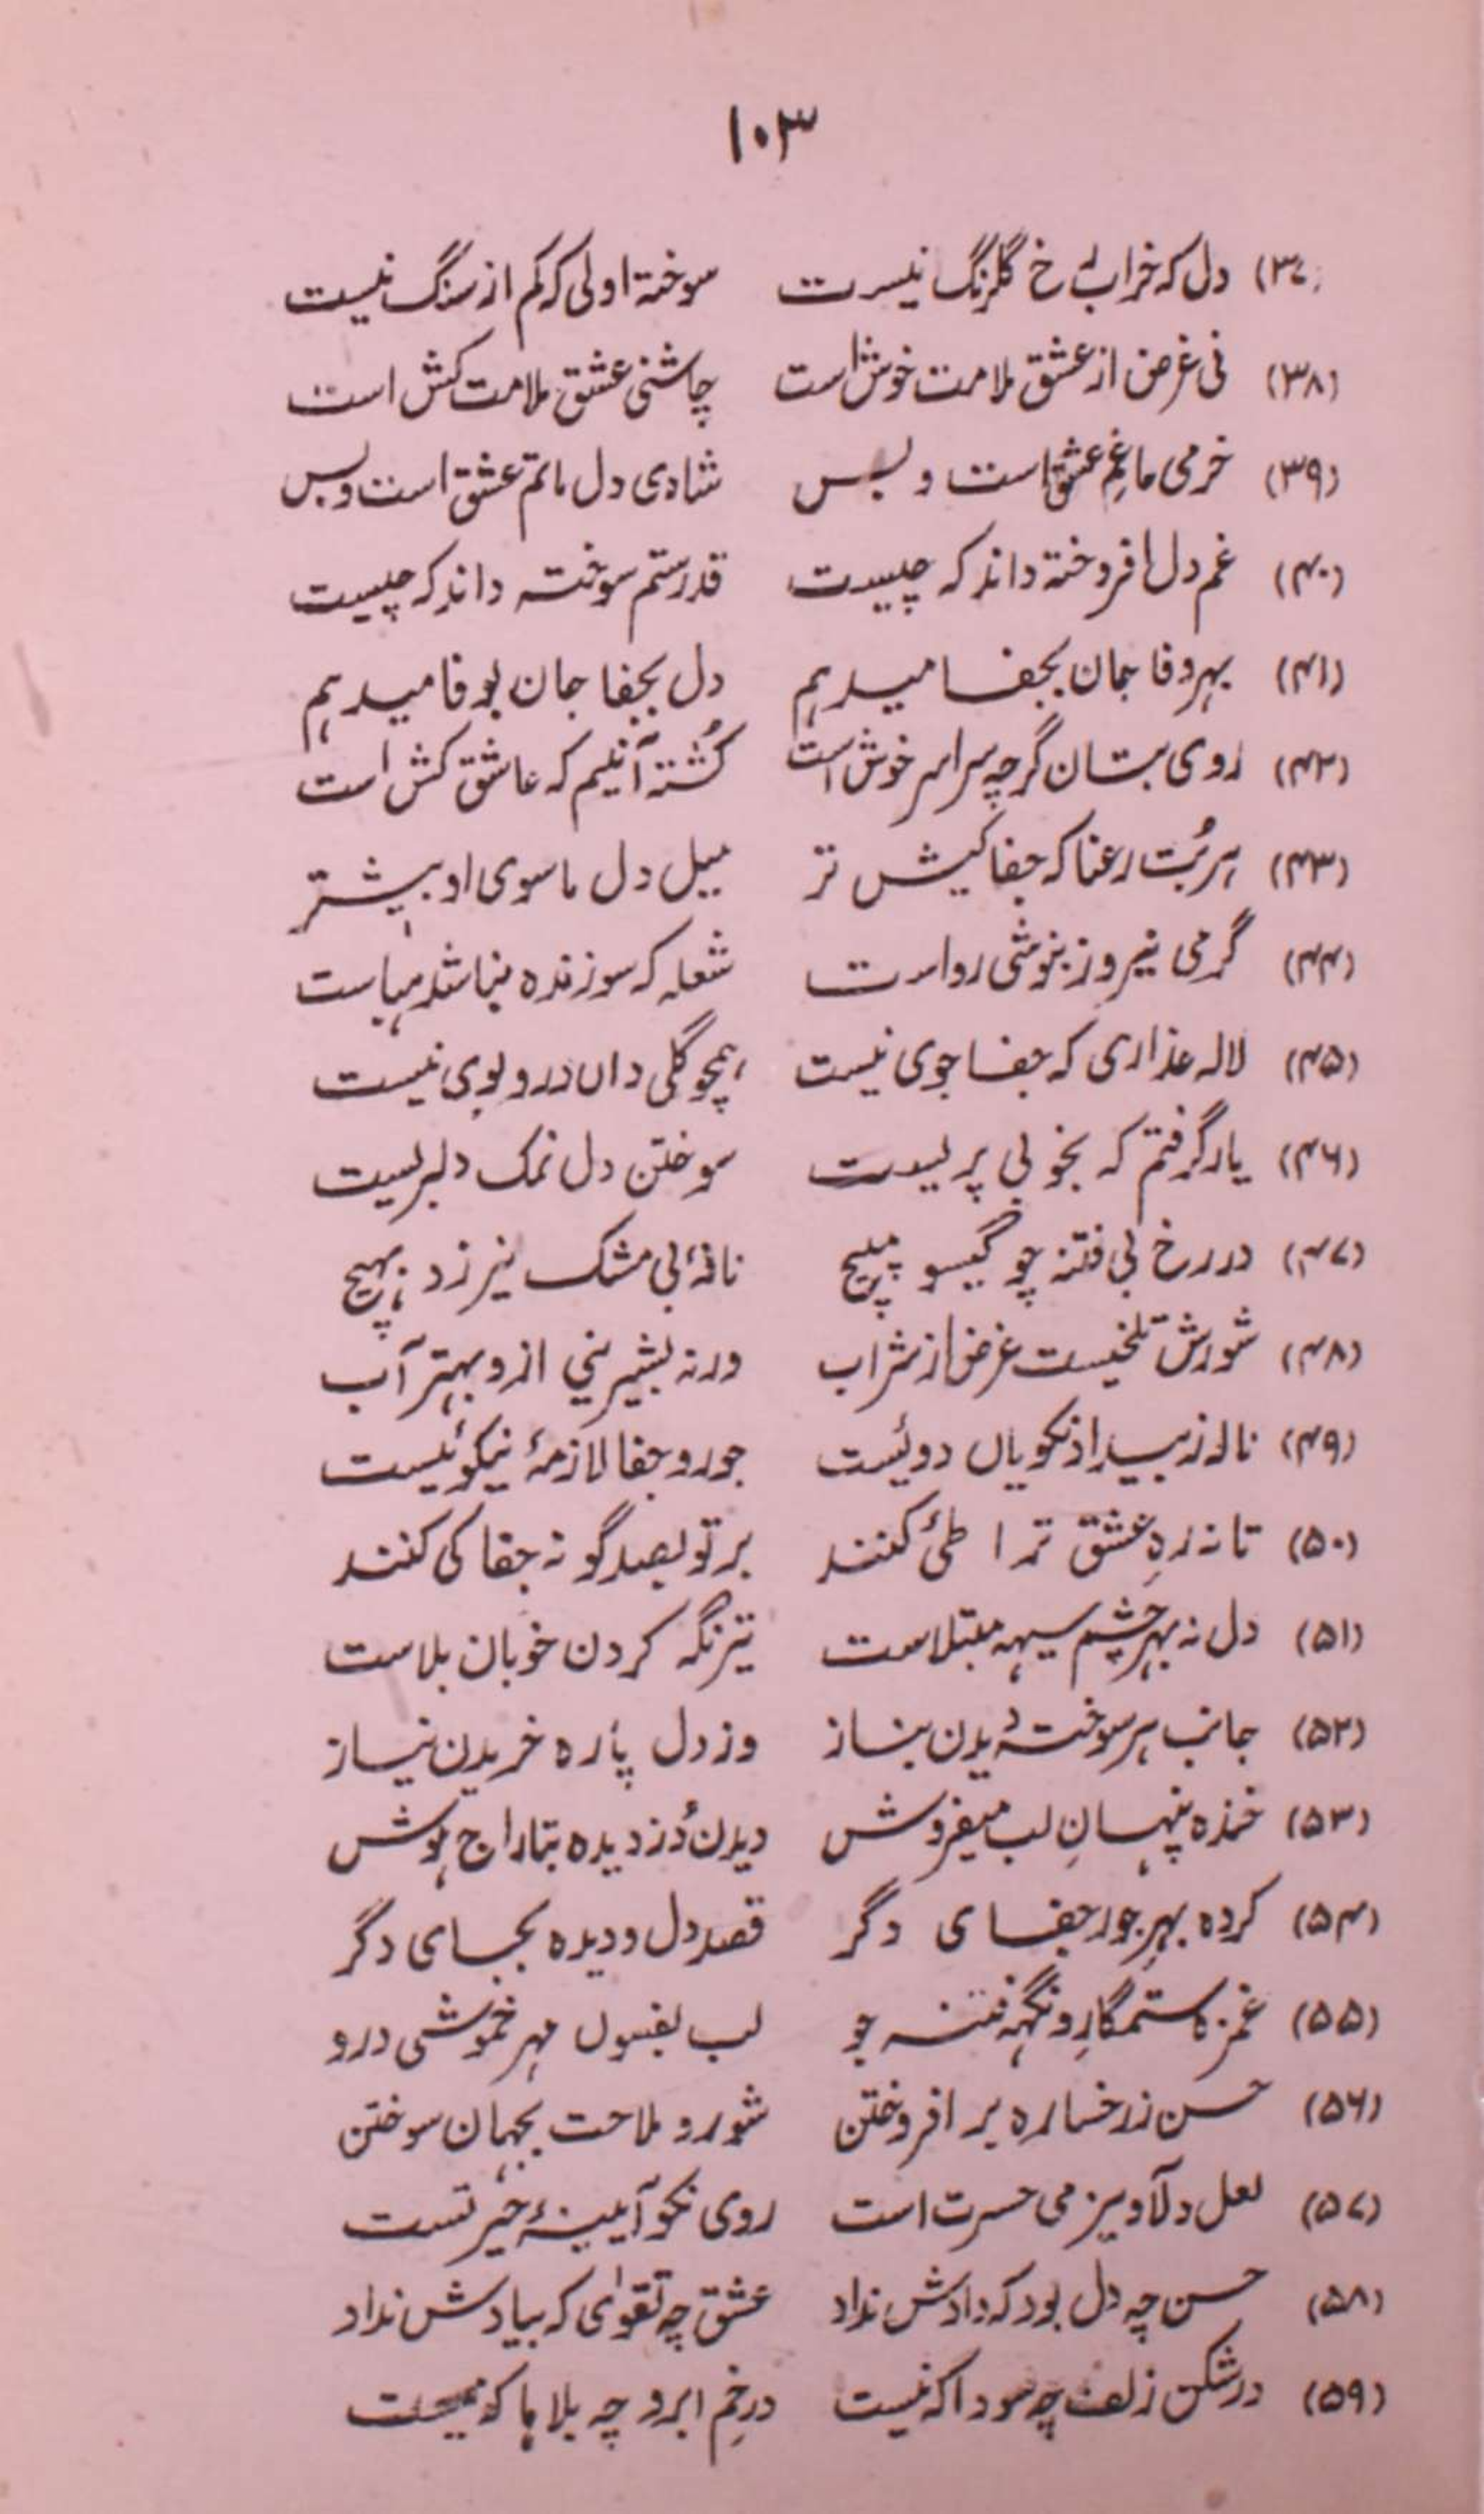 ۱۰۳
(۳۷) دل که خراب رخ گلرنگ نیست سوخته اولی که کم از سنگ نیست
(۳۸) نی غرض از عشق ملامت خوش است چاشنی عشق ملامت کش است
(۳۹) خرمی ما غمِ عشق است و بس شادی دل ماتم عشق است و بس
(۴۰) غم دل افروخته داند که چیست قدر ستم سوخته داند که چیست
(۴۱) بهر وفا جان بجفا میدهم دل بجفا جان بوفا میدهم
(۴۲) روی بتان گرچه سراسر خوش است کُشتهٔ آنیم که عاشق کش است
(۴۳) هر بُت رعنا که جفا کیش تر میل دل ما سوی او بیشتر
(۴۴) گرمی نیروز بنوشی رواست شعله که سوزنده نباشد هباست
(۴۵) لاله عذاری که جفا جوی نیست همچو گلی داں در و بوی نیست
(۴۶) یار گرفتم که بخوبی پریست سوختن دل نمک دلبریست
(۴۷) در رخ بی فتنه چو گیسو مپیچ نافهٔ بی مشک نیرزد بهیچ
(۴۸) شورش تلخیست غرض از شراب ورنه بشیرینی ازو بهتر آب
(۴۹) ناله ز بیداد نکویاں دوئیست جور و جفا لازمهٔ نیکوئیست
(۵۰) تا نه رهِ عشق ترا طی کنند بر تو بصد گونه جفا کی کنند
(۵۱) دل نه بهر چشم سیه مبتلاست تیز نگه کردن خوبان بلاست
(۵۲) جانب هر سوخته دیدن بناز وز دل پاره خریدن نیاز
(۵۳) خنده پنهانِ لب میفروش دیدن دُزدیده بتاراج هوش
(۵۴) کرده بهرِ جور جفای دگر قصد دل و دیده بجای دگر
(۵۵) غمزه ستمگار و نگه فتنه جو لب بفسوں مهر خموشی درو
(۵۶) حسن ز رخساره بر افروختن شور و ملاحت بجهان سوختن
(۵۷) لعل دلآویز می حسرت است روی نکو آیینهٔ حیرتست
(۵۸) حسن چه دل بود که دادش نداد عشق چه تقویٰ که ببادش نداد
(۵۹) در شکن زلف چه سودا که نیست در خمِ ابرو چه بلاها که نیست